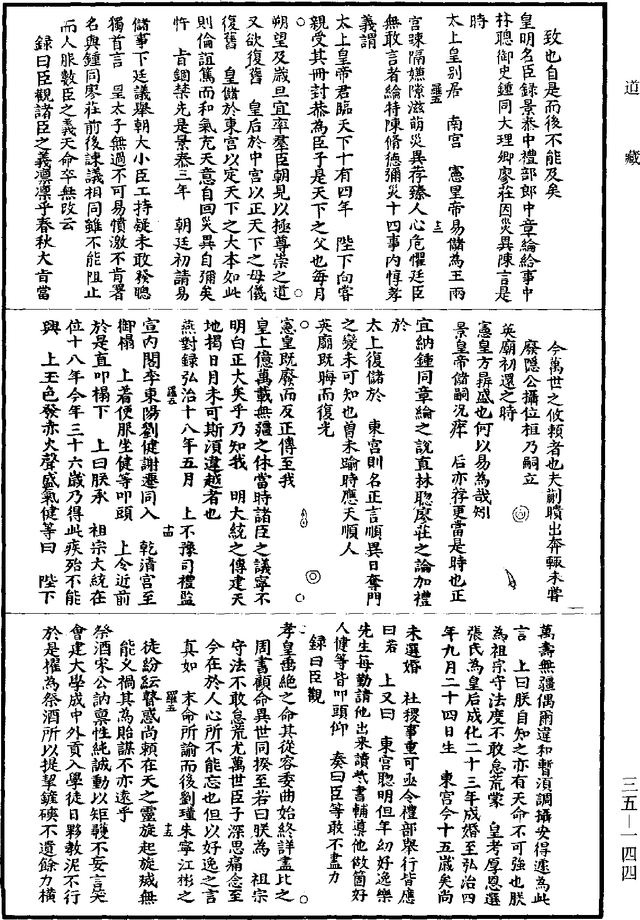 道藏
致也自是而後不能及矣
皇明名臣錄景泰中禮部郎中章綸給事中
林聰御史鍾同大理卿廖莊因災異陳言是
時
太上皇別居 南宮 憲皇帝易儲為王兩
羅五 十三
宮疎隔嫌隙滋萌災異荐臻人心危懼廷臣
無敢言者綸特陳脩德彌災十四事內惇孝
義謂
太上皇帝君臨天下十有四年 陛下向嘗
親受其冊封恭為臣子是天下之父也每月
朔望及歲旦宜率羣臣朝見以極尊崇之道
又欲復舊 皇后於中宮以正天下之母儀
復舊 皇儲於東宮以定天下之大本如此
則倫誼篤而和氣充天意自回災異自彌矣
忤 旨錮禁先是景泰三年 朝廷初請易
儲事下廷議舉朝大小臣工持疑未敢發聰
獨首言 皇太子無過不可易憤激不肯署
名與鍾同廖莊前後諫議相同雖不能阻止
而人脈數臣之義天命卒無改云
錄曰臣觀諸臣之義凜凜乎春秋大肯當
今萬世之攸賴者也夫蒯聵出奔輒未嘗
廢隱公攝位桓乃嗣立
英廟初還之時
憲皇方 盛也何以易為哉矧
景皇帝儲嗣況瘁 后亦荐更當是時也正
宜納鍾同章綸之說直林聰廖莊之論加禮
於
太上復儲於 東宮則名正言順異日奪門
之變未可知也曾未踰時應天順人
英廟既晦而復光
憲皇既廢而反正傳至我
皇上億萬載無疆之休當時諸臣之議寧不
明白正大矣乎乃知我 明大統之傳建天
地揭日月未可斯須違越者也
燕對錄弘治十八年五月 上不豫司禮監
羅五 十四
宣內閣李東陽劉健謝遷同入 乾清宮至
御榻 上着便服坐健等叩頭 上令近前
於是直叩榻下 上曰朕承 祖宗大統在
位十八年今年三十六歲乃得此疾殆不能
興 上玉色發赤火聲盛氣健等曰 陛下
萬壽無疆偶爾違和暫須調攝安得遽為此
言 上曰朕自知之亦有天命不可強也朕
為祖宗守法度不敢怠荒蒙 皇考厚恩選
張氏為皇后成化二十三年成婚至弘治四
年九月二十四日生 東宮今十五歲矣尚
未選婚 社稷事重可亟令禮部舉行皆應
曰若 上又曰 東宮聰明但年幼好逸樂
先生每勤請他出來讀些書輔導他做箇好
人健等皆叩頭仰 奏曰臣等敢不盡力
錄曰臣觀
孝皇垂絕之命其從容委曲始終詳盡比之
周書顧命異世同揆至若曰朕為 祖宗
守法不敢怠荒尤萬世臣子深思痛念至
今在於人心所不能忘也但以好逸之言
真如 末命所諭而後劉瑾朱寧江彬之
羅五 十五
徒紛紜瞽惑尚賴在天之靈旋起旋滅無
能乂禍其為貽謀不亦遠乎
祭酒宋公訥稟性純誠動以矩矱不妄言笑
會建大學成中外貢入學徒日夥教泥不行
於是擢為祭酒所以提挈 不遺餘力橫
三五—一四四